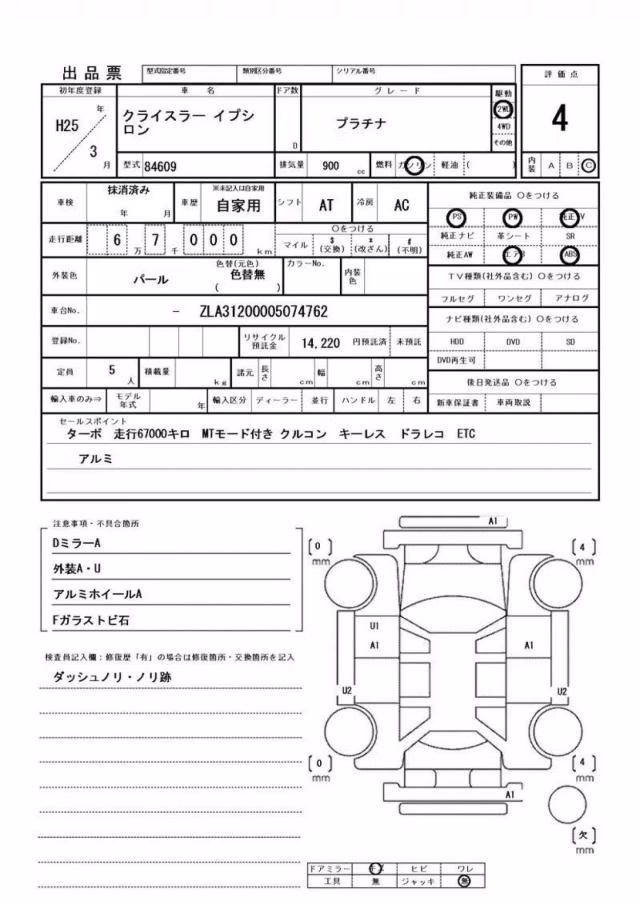 出品票 型式指定番号 類別区分番号 シリアル番号
初年度登録 車名 ドア数 グレード 駆動 評価点
H25 年 3 月 クライスラー イプシロン D プラチナ 2WD 4WD その他 4
型式 84609 排気量 900 cc 燃料 ガソリン 軽油 ( ) 内装 A B C
車検 抹消済み 年 月 車歴 ※未記入は自家用 自家用 シフト AT 冷房 AC
純正装備品 〇をつける
PS PW 純正TV
純正ナビ 革シート SR
純正AW エアB ABS
走行距離 6 万 7 千 0 0 0 km 〇をつける マイル $ (交換) * (改ざん) # (不明)
外装色 パール 色替(元色) 色替無 ( ) カラーNo. 内装色
TV種類(社外品含む) 〇をつける
フルセグ ワンセグ アナログ
車台No. - ZLA31200005074762
ナビ種類(社外品含む) 〇をつける
登録No. リサイクル預託金 14,220 円預託済 未預託
HDD DVD SD
DVD再生可
定員 5 人 積載量 kg 諸元 長さ cm 幅 cm 高さ cm
後日発送品 〇をつける
輸入車のみ⇒ モデル年式 年 輸入区分 ディーラー 並行 ハンドル 左 右 新車保証書 車両取説
セールスポイント
ターボ 走行67000キロ MTモード付き クルコン キーレス ドラレコ ETC
アルミ
注意事項・不具合箇所
DミラーA
外装A・U
アルミホイールA
Fガラストビ石
検査員記入欄:修復歴「有」の場合は修復箇所・交換箇所を記入
ダッシュノリ・ノリ跡
A1
[0] mm [4] mm
U1
A1 A1
U2 U2
[0] mm [4] mm
A1
[欠] mm
ドアミラー キズ ヒビ ワレ
工具 無 ジャッキ 無